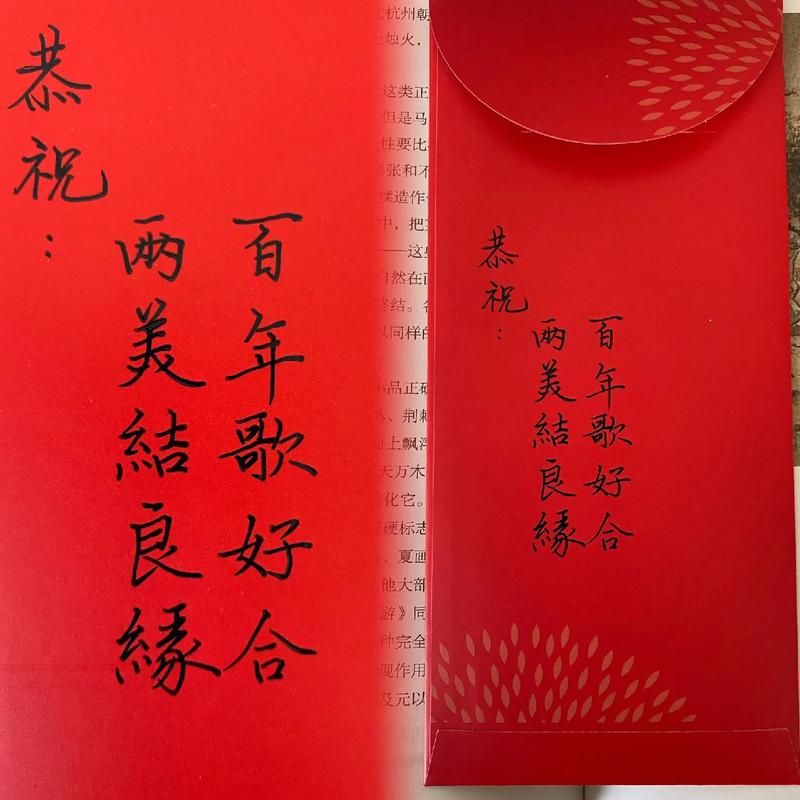 恭祝：
百年歌好合
两美結良緣
杭州朝
烛火，
这类正
但是马
性要比
张和不
揉造作
中，把
——这些
自然在
终结。
以同样的
小品正
、荆
上飘浮
天万木
化它。
硬标志
、夏画
他大部
游》同
种完全
现作用
及元以
恭祝：
百年歌好合
两美結良緣